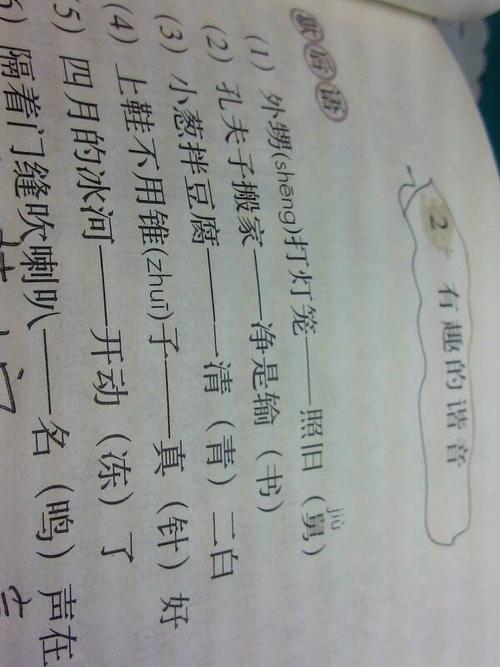 2 有趣的谐音
歇后语
(1) 外甥(shēng)打灯笼——照旧（舅）jiù
(2) 孔夫子搬家——净是输（书）
(3) 小葱拌豆腐——一清（青）二白
(4) 上鞋不用锥(zhuī)子——真（针）好
(5) 四月的冰河——开动（冻）了
(6) 隔着门缝吹喇叭——名（鸣）声在